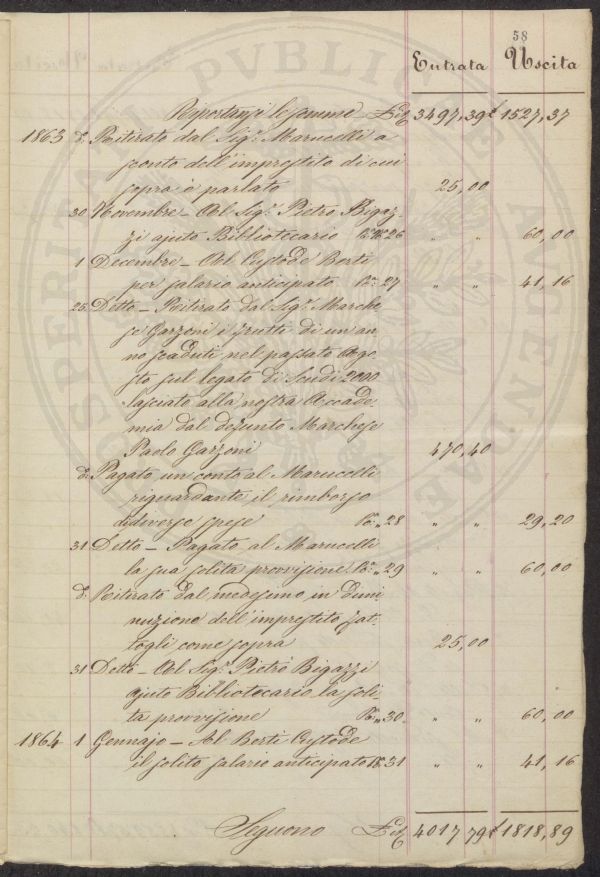 58
Entrata Uscita
Riportansi le somme 3497,39 1527,37
1863 d.° Ritirato dal Sig.r Marucelli a
sconto dell'imprestito di cui
sopra è parlato 25,00
30 Novembre – Al Sig.r Pietro Bigaz-
zi ajuto Bibliotecario N.° 26 " " 60,00
1 Decembre – Al Custode Berti
per salario anticipato N.° 27 " " 41,16
25 Detto – Ritirato dal Sig.r Marche
se Garzoni i frutti di un an
no scaduti nel passato Ago
sto sul legato di Scudi 2000
lasciato alla nostra Accade
mia dal defunto Marchese
Paolo Garzoni 470,40
d.° Pagato un conto al Marucelli
riguardante il rimborso
di diverse spese N.° 28 " " 29,20
31 Detto – Pagato al Marucelli
la sua solita provvisione N.° 29 " " 60,00
d.° Ritirato dal medesimo in dimi
nuzione dell'imprestito fat-
togli come sopra 25,00
31 Detto – Al Sig.r Pietro Bigazzi
ajuto Bibliotecario la soli
ta provvisione N.° 30 " " 60,00
1864 1 Gennajo – Al Berti Custode
il solito salario anticipato N.° 31 " " 41,16
Seguono 4017,79 1818,89
PROSPERITATI PVBLICAE AVGENDAE